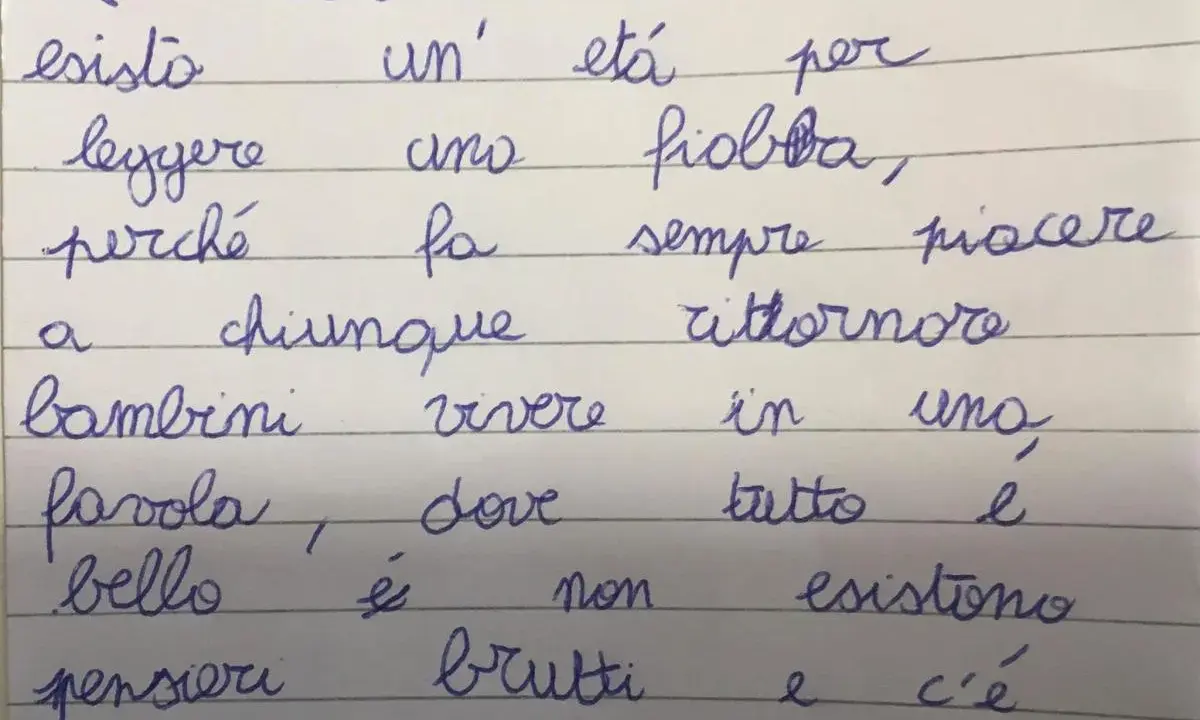 esista un' etá per
leggere una fiabba,
perché fa sempre piacere
a chiunque rittornare
bambini vivere in una
favola, dove tutto é
bello é non esistono
pensieri brutti e c'é